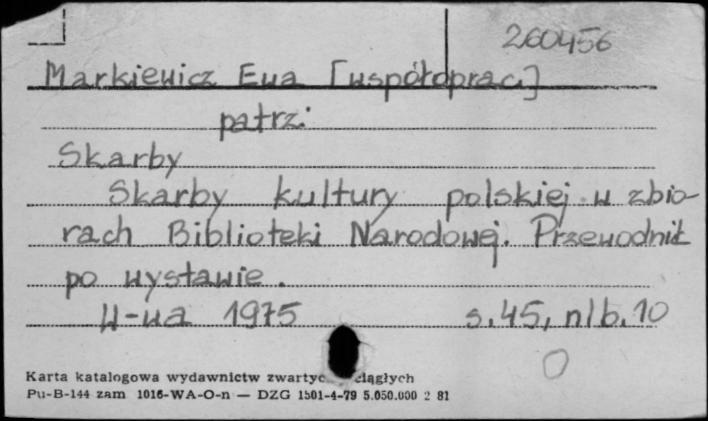 260456
Markiewicz Ewa [współoprac.]
patrz:
Skarby
Skarby kultury polskiej w zbio-
rach Biblioteki Narodowej. Przewodnik
po wystawie.
W-wa 1975 s. 45, nlb. 10
Karta katalogowa wydawnictw zwartyc ciągłych
Pu-B-144 zam 1016-WA-O-n — DZG 1501-4-79 5.050.000 2 81